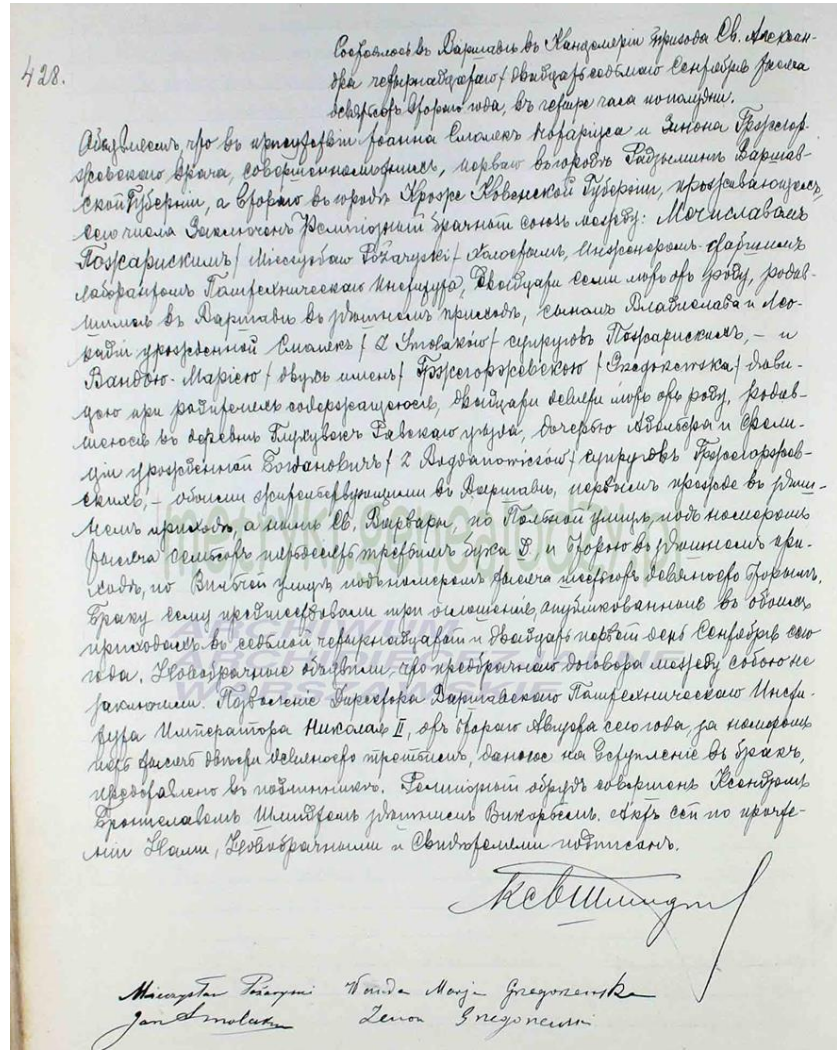 428.
Состоялось въ Варшавѣ въ Канцеляріи прихода Св. Алексан-
дра четырнадцатаго / двадцать седьмаго Сентября тысяча
девятьсотъ втораго года, въ четыре часа пополудни.
Объявляемъ, что въ присутствіи Іоанна Смолякъ Нотаріуса и Зенона Гржегор-
жевскаго врача, совершеннолѣтнихъ, перваго въ городѣ Радзыминѣ Варшав-
ской Губерніи, а втораго въ городѣ Кроже Ковенской Губерніи, проживающихъ,
сего числа заключенъ религіозный брачный союзъ между: Мечиславомъ
Пожарискимъ / Mieczysław Pożaryski / холостымъ, Инженеромъ-старшимъ
лаборантомъ Политехническаго Института, двадцати семи лѣтъ отъ роду, родив-
шимся въ Варшавѣ въ здѣшнемъ приходѣ, сыномъ Владислава и Лео-
кадіи урожденной Смолякъ / z Smolaków / супруговъ Пожарискихъ, — и
Вандою-Маріею / двухъ именъ / Гржегоржевскою / Grzegorzewska / дѣви-
цею при родителяхъ содержащеюся, двадцати девяти лѣтъ отъ роду, родив-
шеюся въ деревнѣ Глухувекъ Равскаго уѣзда, дочерью и Фели-
ціи урожденной Богдановичъ / z Bogdanowiczów / супруговъ Гржегоржев-
скихъ, — обоими жительствующими въ Варшавѣ, первымъ прежде въ здѣш-
немъ приходѣ, а нынѣ Св. Варвары, по улицѣ подъ номеромъ
тысяча пятьдесятъ третьимъ буква D. и второю въ здѣшнемъ при-
ходѣ, по Вильчей улицѣ подъ номеромъ тысяча шестьсотъ девяносто вторымъ.
Браку сему предшествовали три оглашенія, опубликованныя въ обоихъ
приходахъ въ седьмой четырнадцатый и двадцать первый день Сентября сего
года. Новобрачные объявили, что предбрачнаго договора между собою не
заключили. Позволеніе Директора Варшавскаго Политехническаго Инсти-
тута Императора Николая II, отъ втораго Августа сего года, за номеромъ
тысячъ двѣсти девяносто третьимъ, данное на вступленіе въ бракъ,
представлено въ подлинникѣ. Религіозный обрядъ совершенъ Ксендзомъ
Брониславомъ Шмидтомъ здѣшнимъ Викаріемъ. Актъ сей по прочте-
ніи Нами, Новобрачными и Свидѣтелями подписанъ.
КсБШмидт
Mieczysław Pożaryski Wanda Marja Grzegorzewska
Jan Smolak Zenon Grzegorzewski
metryki.genealodzy.pl
ARCHIWUM
ARCHIDIECEZJALNE
WARSZAWSKIE